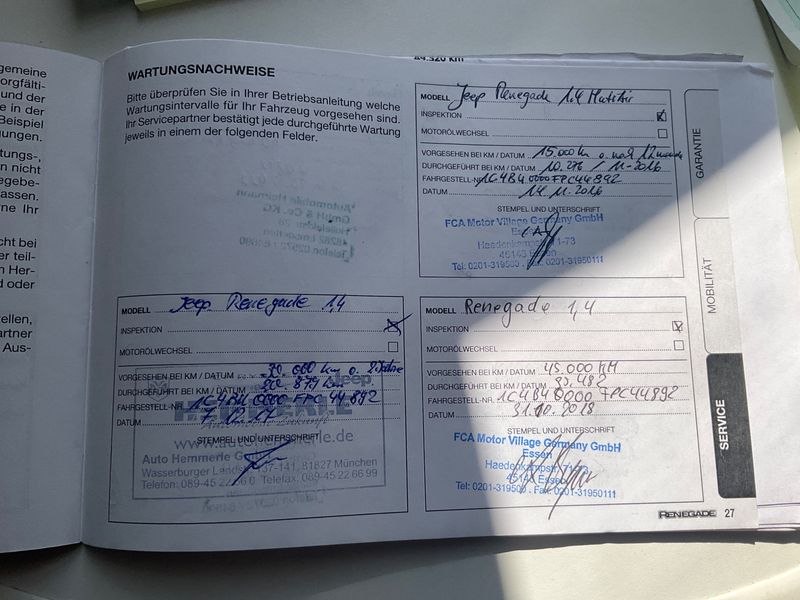 gemeine
orgfälti-
und der
e in der
Beispiel
gungen.
tungs-,
en nicht
egebe-
assen.
ne Ihr
cht bei
er teil-
n Her-
d oder
tellen,
artner
Aus-
WARTUNGSNACHWEISE
Bitte überprüfen Sie in Ihrer Betriebsanleitung welche
Wartungsintervalle für Ihr Fahrzeug vorgesehen sind.
Ihr Servicepartner bestätigt jede durchgeführte Wartung
jeweils in einem der folgenden Felder.
MODELL Jeep Renegade 1,4
INSPEKTION
MOTORÖLWECHSEL
VORGESEHEN BEI KM / DATUM 30.000 km o. 2 Jahre
DURCHGEFÜHRT BEI KM / DATUM
FAHRGESTELL-NR. 1C4BU0000FPC44892
DATUM
STEMPEL UND UNTERSCHRIFT
Jeep
Auto Hemmerle
Wasserburger 137-141, 81827 München
Telefon: 089-45 22 Telefax: 089-45 22 66 99
MODELL Jeep Renegade 1,4
INSPEKTION
MOTORÖLWECHSEL
VORGESEHEN BEI KM / DATUM 15.000 km o.
DURCHGEFÜHRT BEI KM / DATUM 10.276 / 11-2016
FAHRGESTELL-NR. 1C4BU0000FPC44892
DATUM 14.11.2016
STEMPEL UND UNTERSCHRIFT
FCA Motor Village Germany GmbH
Haedenkampstr. 71-73
45143 Essen
Tel: 0201-319500 . Fax: 0201-31950111
MODELL Renegade 1,4
INSPEKTION
MOTORÖLWECHSEL
VORGESEHEN BEI KM / DATUM 45.000 KM
DURCHGEFÜHRT BEI KM / DATUM 33.482
FAHRGESTELL-NR. 1C4BU0000FPC44892
DATUM 31.10.2018
STEMPEL UND UNTERSCHRIFT
FCA Motor Village Germany GmbH
Essen
Haedenkampstr. 71-73
45143 Essen
Tel: 0201-319500 . Fax: 0201-31950111
GARANTIE
MOBILITÄT
SERVICE
RENEGADE 27